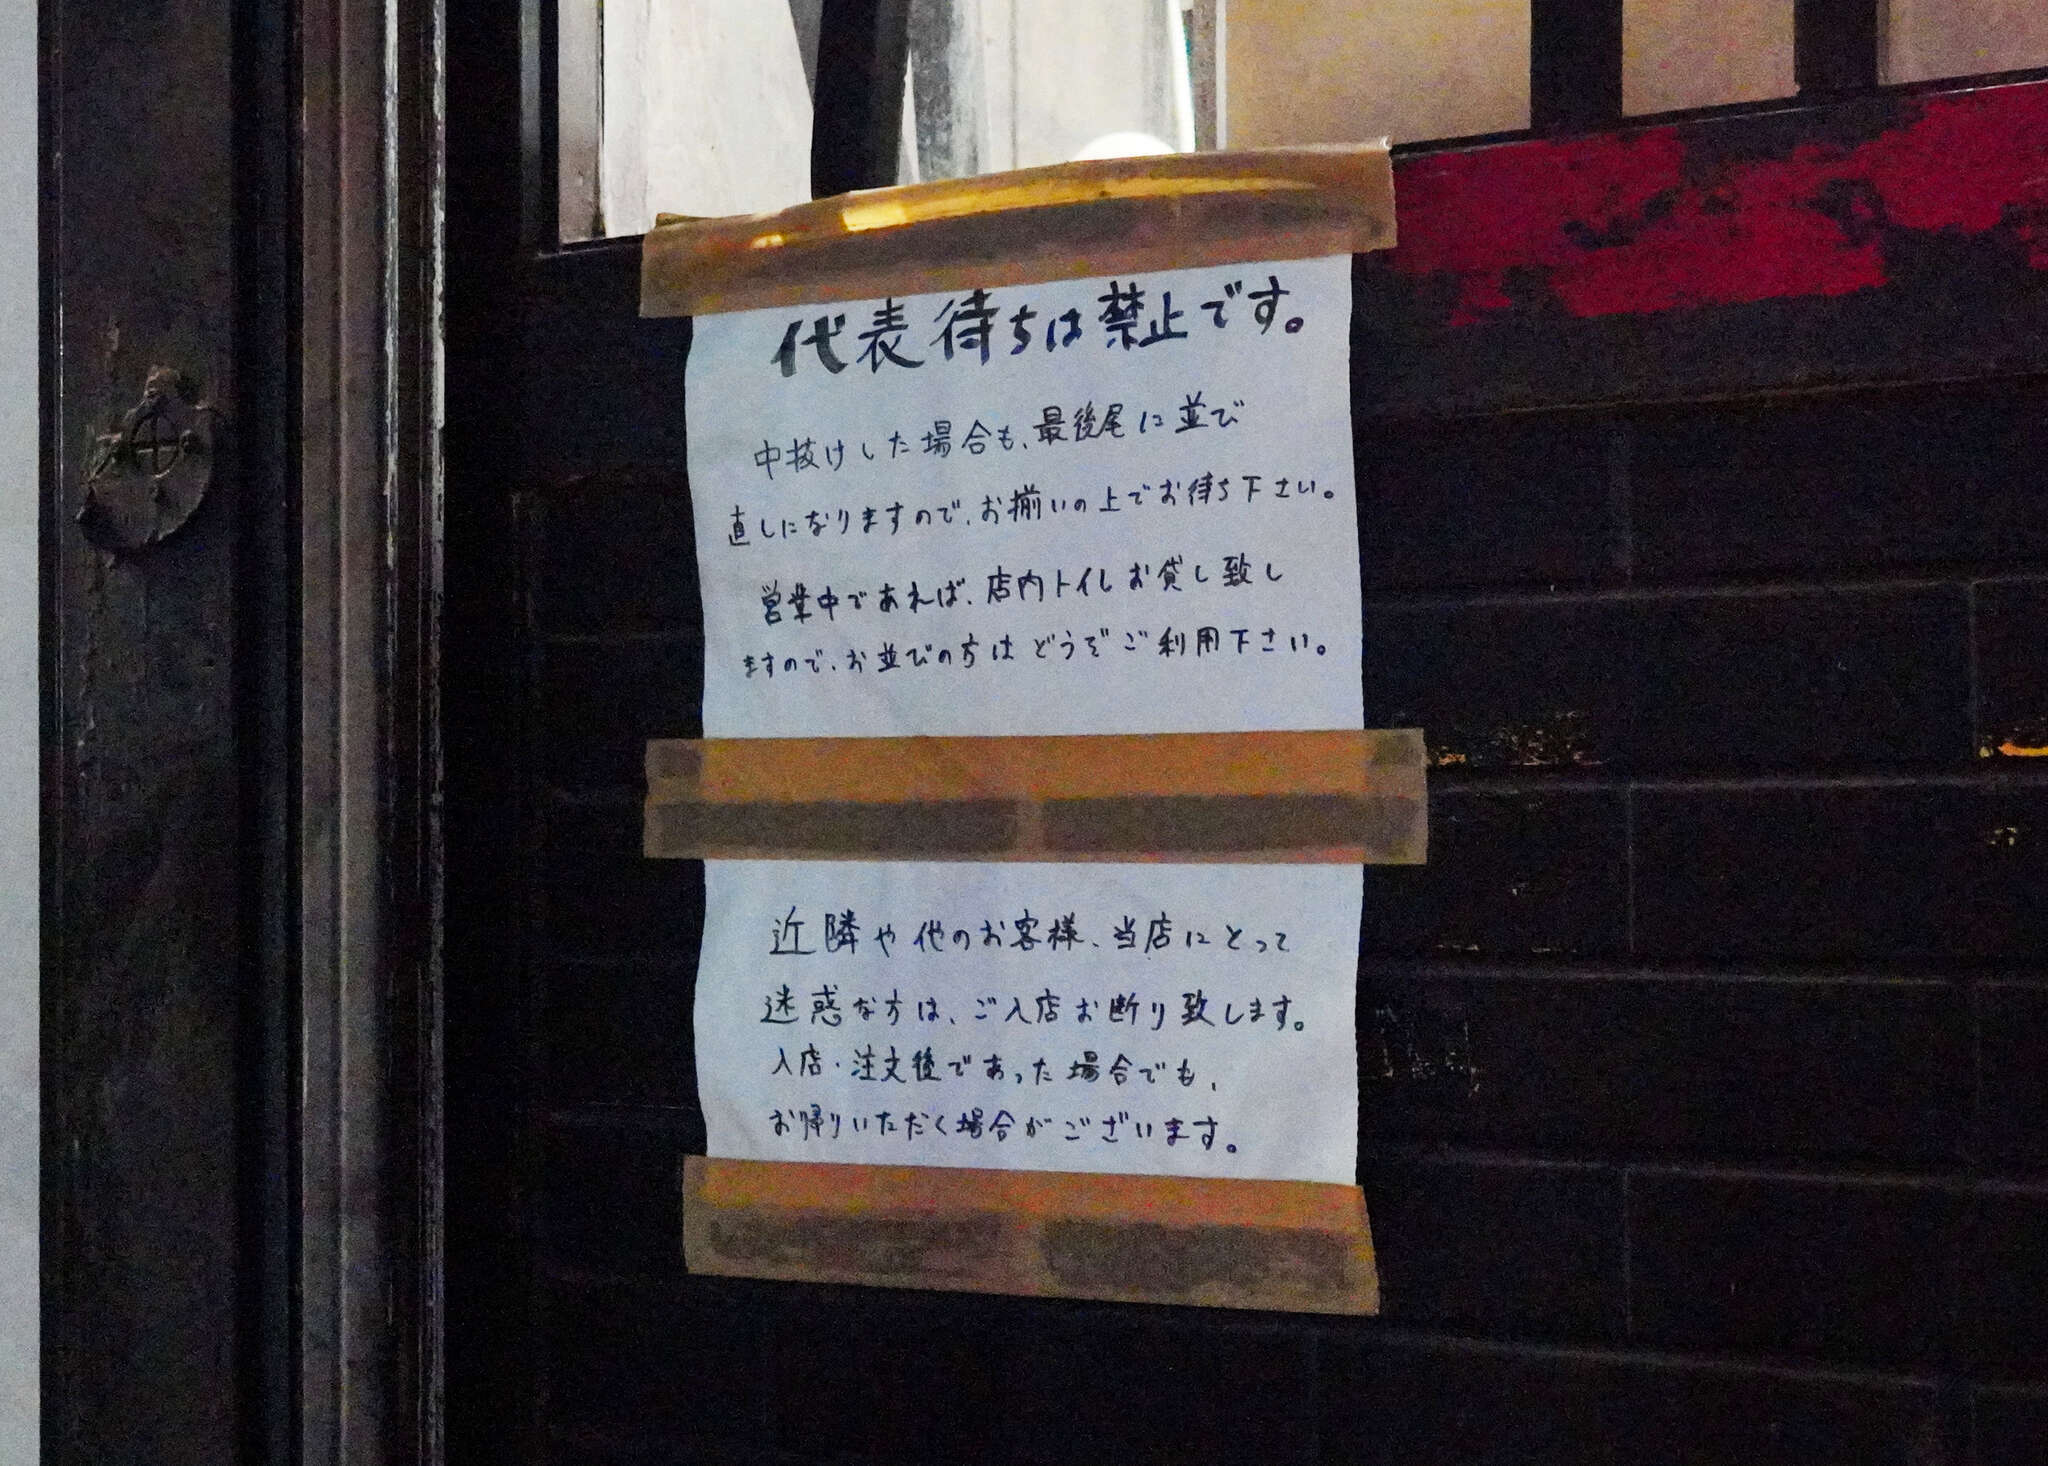 代表待ちは禁止です。
中抜けした場合も、最後尾に並び
直しになりますので、お揃いの上でお待ち下さい。
営業中であれば、店内トイレお貸し致し
ますので、お並びの方はどうぞご利用下さい。
近隣や他のお客様、当店にとって
迷惑な方は、ご入店お断り致します。
入店・注文後であった場合でも、
お帰りいただく場合がございます。